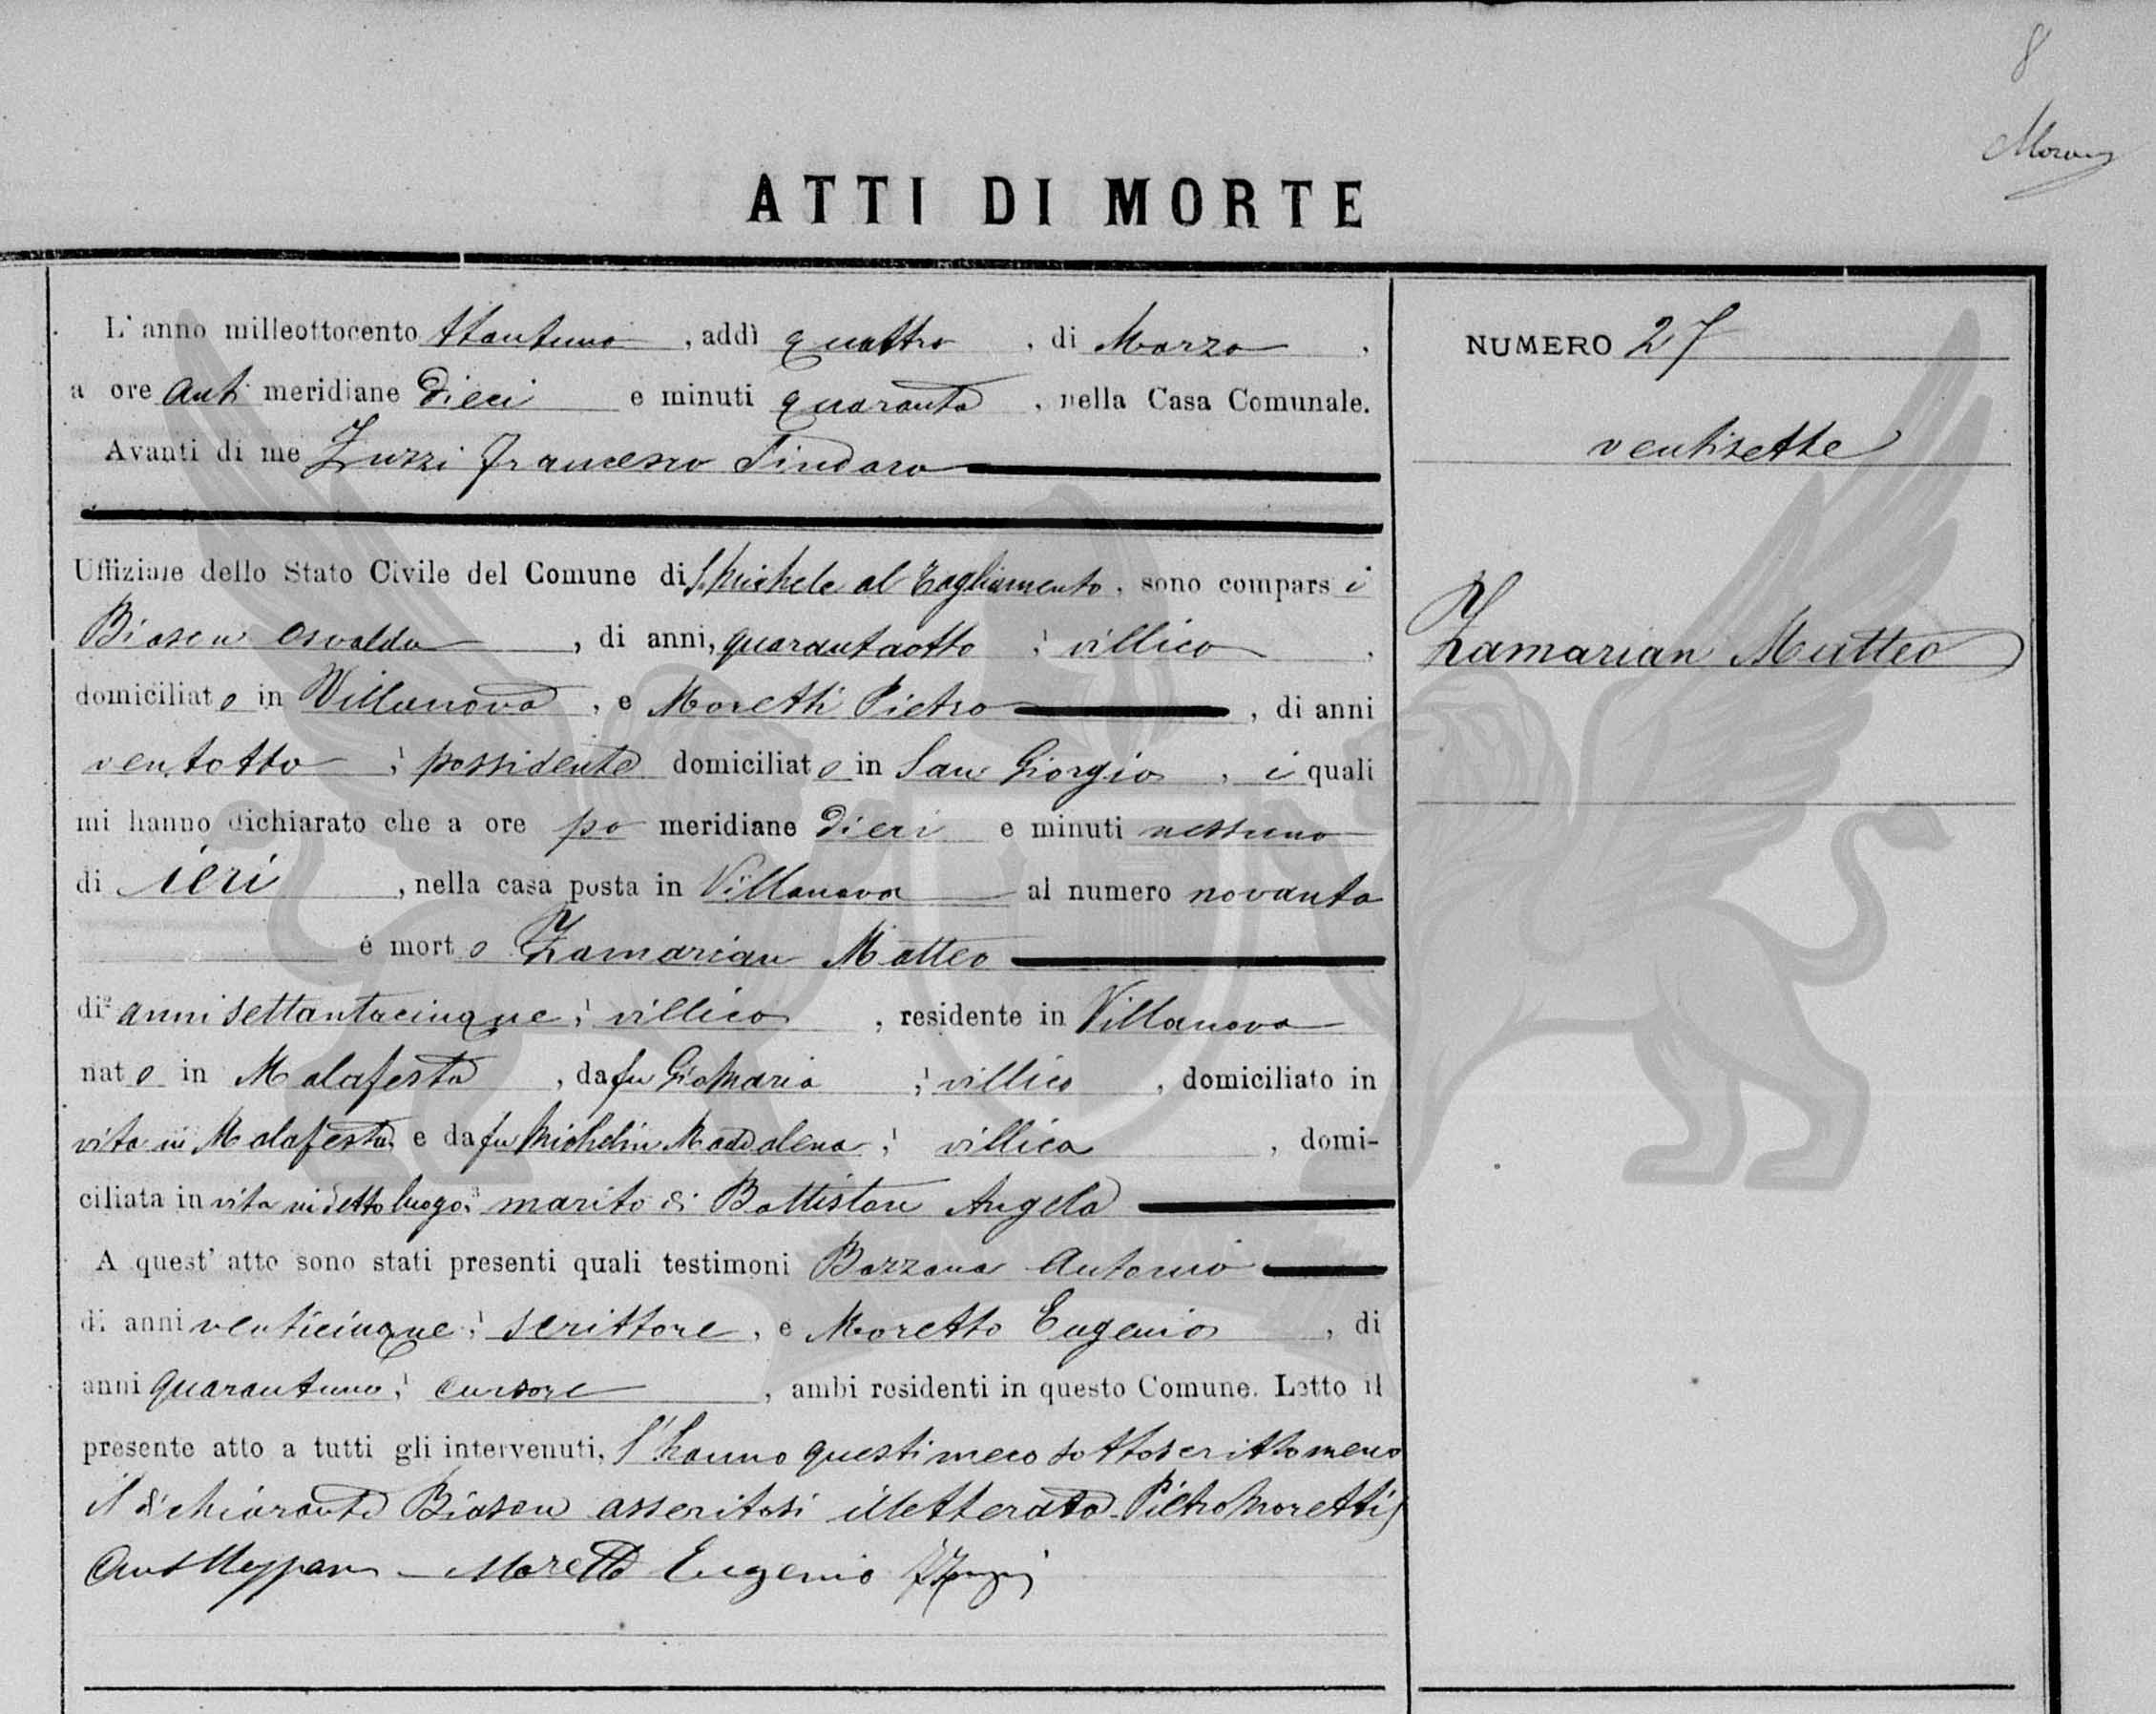 8
ATTI DI MORTE
L'anno milleottocento ttantuno, addì quattro, di Marzo,
a ore anti meridiane dieci e minuti quaranta, nella Casa Comunale.
Avanti di me Zuzzi Francesco Sindaco
Uffiziale dello Stato Civile del Comune di S. Michele al Tagliamento, sono comparsi
Biason Osvaldo, di anni, quarantaotto, villico,
domiciliato in Villanova, e Moretti Pietro, di anni
ventotto, possidente domiciliato in San Giorgio, i quali
mi hanno dichiarato che a ore po meridiane dieci e minuti nessuno
di ieri, nella casa posta in Villanova al numero novanta
è morto Zamarian Matteo
di anni settantacinque, villico, residente in Villanova
nato in Malafesta, da fu GioMaria, villico, domiciliato in
vita in Malafesta, e da fu Michelin Maddalena, villica, domi-
ciliata in vita in detto luogo, marito di Battiston Angela
A quest' atto sono stati presenti quali testimoni Bozzana Antonio
di anni venticinque, scrittore, e Moretto Eugenio, di
anni quarantuno, cursore, ambi residenti in questo Comune. Letto il
presente atto a tutti gli intervenuti, l'hanno questi meco sottoscritto meno
il dichiarante Biason asseritosi illetterato. Pietro Moretti
Moretto Eugenio
NUMERO 27
ventisette
Zamarian Matteo